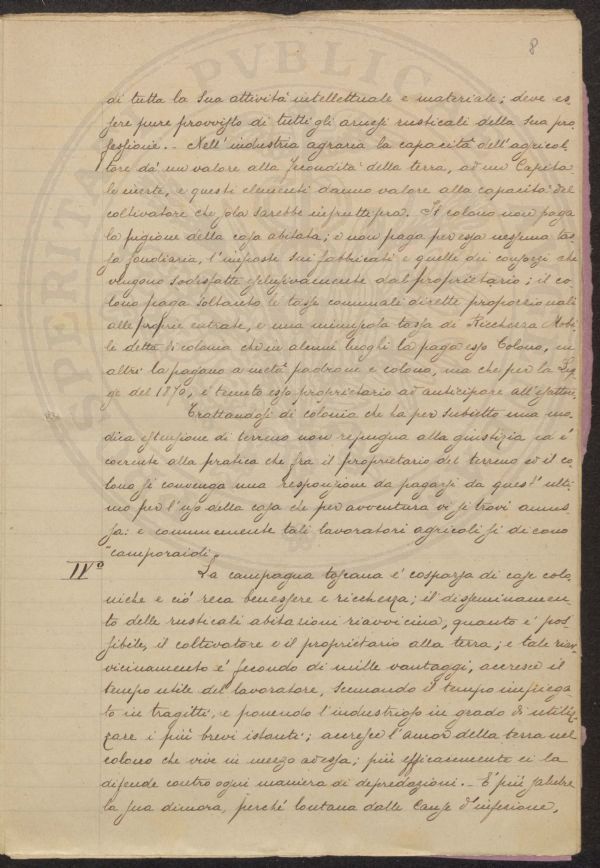 8
di tutta la sua attività intellettuale e materiale; deve es-
sere pure provvisto di tutti gli arnesi rusticali della sua pro-
fessione. - Nell'industria agraria la capacità dell'agricol-
tore dà un valore alla fecondità della terra, ad un Capita-
le inerte, e questi elementi danno valore alla capacità del
coltivatore che sola sarebbe infruttifera. Il colono non paga
la pigione della casa abitata; e non paga per essa nessuna tas-
sa fondiaria, l'imposte sui fabbricati e quelle dei consorzi che
vengono sodisfatte esclusivamente dal proprietario; il co-
lono paga soltanto le tasse comunali dirette proporzionali
alle proprie entrate, e una minuscola tassa di Ricchezza Mobi-
le detta di colonia che in alcuni luoghi la paga esso Colono, in
altri la pagono a metà padrone e colono, ma che per la Leg-
ge del 1870, è tenuto esso proprietario ad anticipare all'esattore.
Trattandosi di colonia che ha per subietto una mo-
dica estensione di terreno non repugna alla giustizia ed è
coerente alla pratica che fra il proprietario del terreno ed il co-
lono si convenga una responsione da pagarsi da quest'ulti-
mo per l'uso della casa che per avventura vi si trovi annes-
sa: e communemente tali lavoratori agricoli si dicono
"camporaioli".
IVº La campagna toscana è cosparsa di case colo-
niche e ciò reca benessere e ricchezza; il disseminamen-
to delle rusticali abitazioni riavvicina, quanto è pos-
sibile, il coltivatore e il proprietario alla terra; e tale riav-
vicinamento è fecondo di mille vantaggi, accresce il
tempo utile del lavoratore, scemando il tempo impiega-
to in tragitti, e ponendo l'industrioso in grado di utiliz-
zare i più brevi istanti; accresce l'amor della terra nel
colono che vive in mezzo ad essa; più efficacemente ei la
difende contro ogni maniera di depredazioni. - È più salubre
la sua dimora, perché lontana dalle Cause d'infezione,
PVBLIC
SPERITA